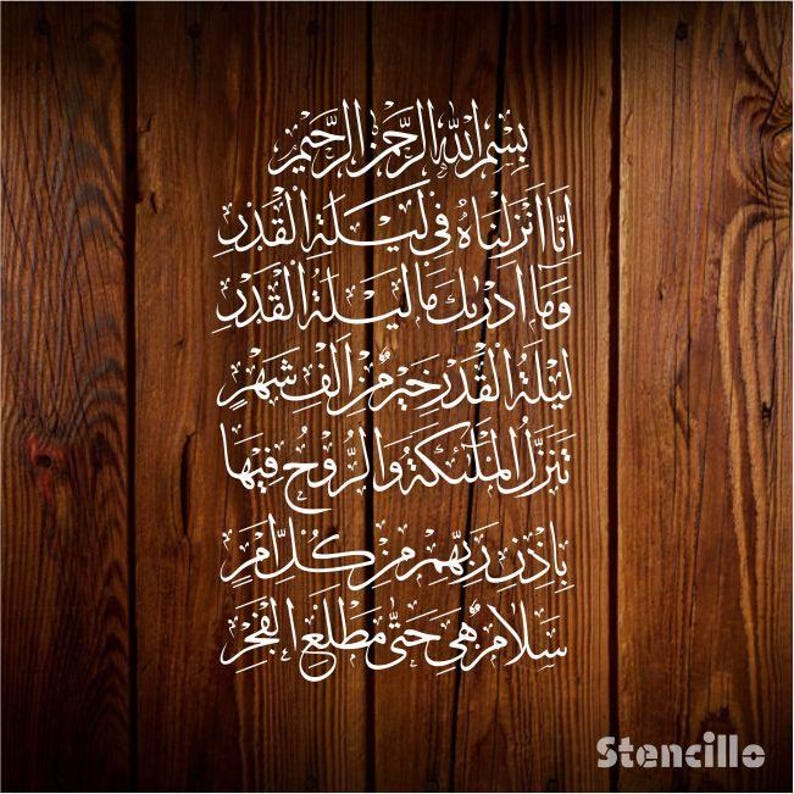 بِسْمِ اللهِ الرَّحْمٰنِ الرَّحِيْمِ
اِنَّا اَنْزَلْنَاهُ فِى لَيْلَةِ الْقَدْرِ
وَمَآ اَدْرٰىكَ مَا لَيْلَةُ الْقَدْرِ
لَيْلَةُ الْقَدْرِ خَيْرٌ مِّنْ اَلْفِ شَهْرٍ
تَنَزَّلُ الْمَلٰٓئِكَةُ وَالرُّوْحُ فِيْهَا
بِاِذْنِ رَبِّهِمْ مِنْ كُلِّ اَمْرٍ
سَلَامٌ هِيَ حَتّٰى مَطْلَعِ الْفَجْرِ
Stencillo